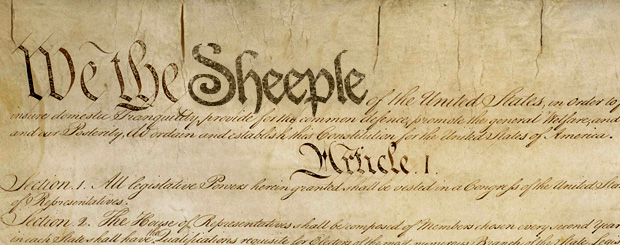 We the Sheeple of the United States, in order to
insure domestic Tranquility, provide for the common defence, promote the general Welfare, and
and our Posterity, do ordain and establish this Constitution for the United States of America.
Article. I.
Section. 1. All legislative Powers herein granted shall be vested in a Congress of the United
of Representatives.
Section. 2. The House of Representatives shall be composed of Members chosen every second Year
in each State shall have the Qualifications requisite for Electors of the most numerous Branch of the State